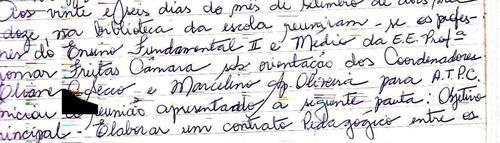 Aos vinte e seis dias do mês de setembro de dois mil
doze na biblioteca da escola reuniram-se os profes-
res do Ensino Fundamental II e Médio da E.E. Profª
omar Freitas Câmara sob orientação dos Coordenadores
e Marcelino Ap. Oliveira para A.T.P.C.
niciar reunião apresentado a seguinte pauta: Objetivo
rincipal - Elaborar um contrato Pedagógico entre os